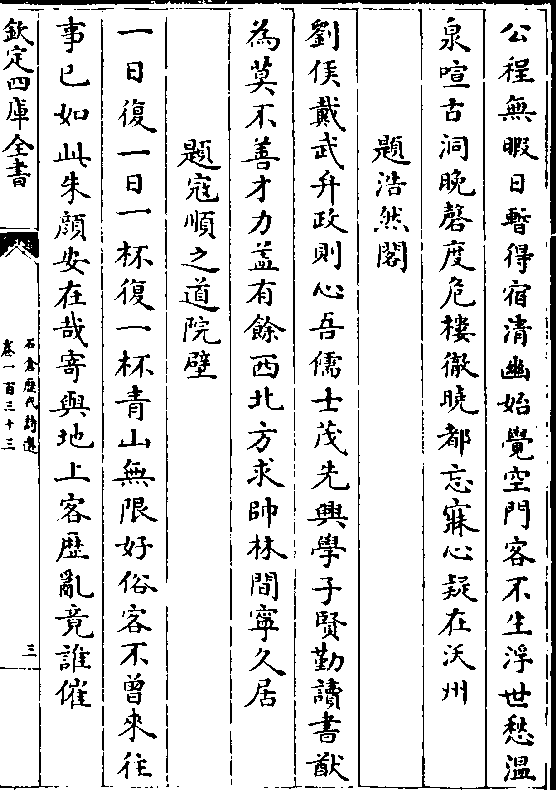 公程無暇日暫得宿清幽始覺空門客不生浮世愁溫
泉喧古洞晚磬度危樓徹曉都忘寐心疑在沃州
題浩然閣
劉侯戴武弁政則心吾儒士茂先興學子賢勤讀書猷
為莫不善才力葢有餘西北方求帥林間寧久居
題寇順之道院壁
一日復一日一杯復一杯青山無限好俗客不曾來往
事已如此朱顔安在哉寄與地上客歴亂竟誰催
欽定四庫全書
石倉歴代詩選
卷一百三十三
三